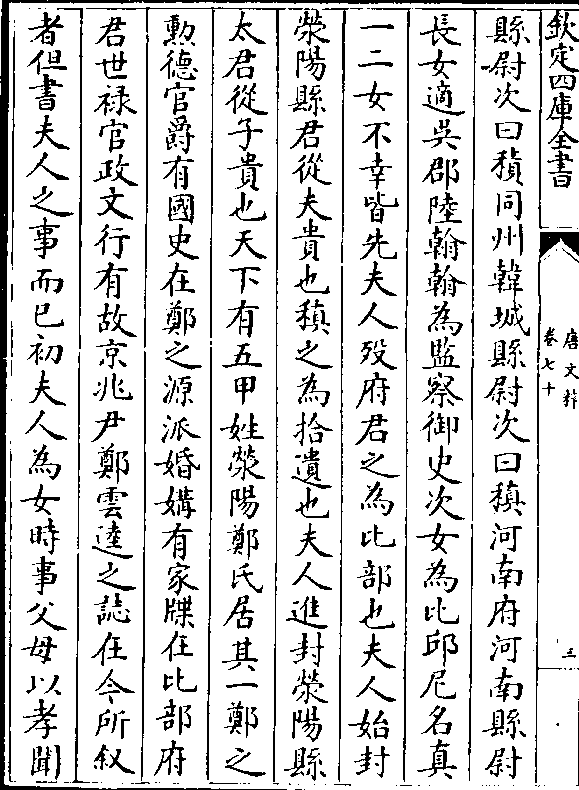 欽定四庫全書
唐文粹
卷七十
三
縣尉次曰積同州韓城縣尉次曰稹河南府河南縣尉
長女適吳郡陸翰翰為監察御史次女為比邱尼名真
一二女不幸皆先夫人歿府君之為比部也夫人始封
滎陽縣君從夫貴也稹之為拾遺也夫人進封滎陽縣
太君從子貴也天下有五甲姓滎陽鄭氏居其一鄭之
勳德官爵有國史在鄭之源派婚媾有家牒在比部府
君世禄官政文行有故京兆尹鄭雲逵之誌在今所叙
者但書夫人之事而已初夫人為女時事父母以孝聞